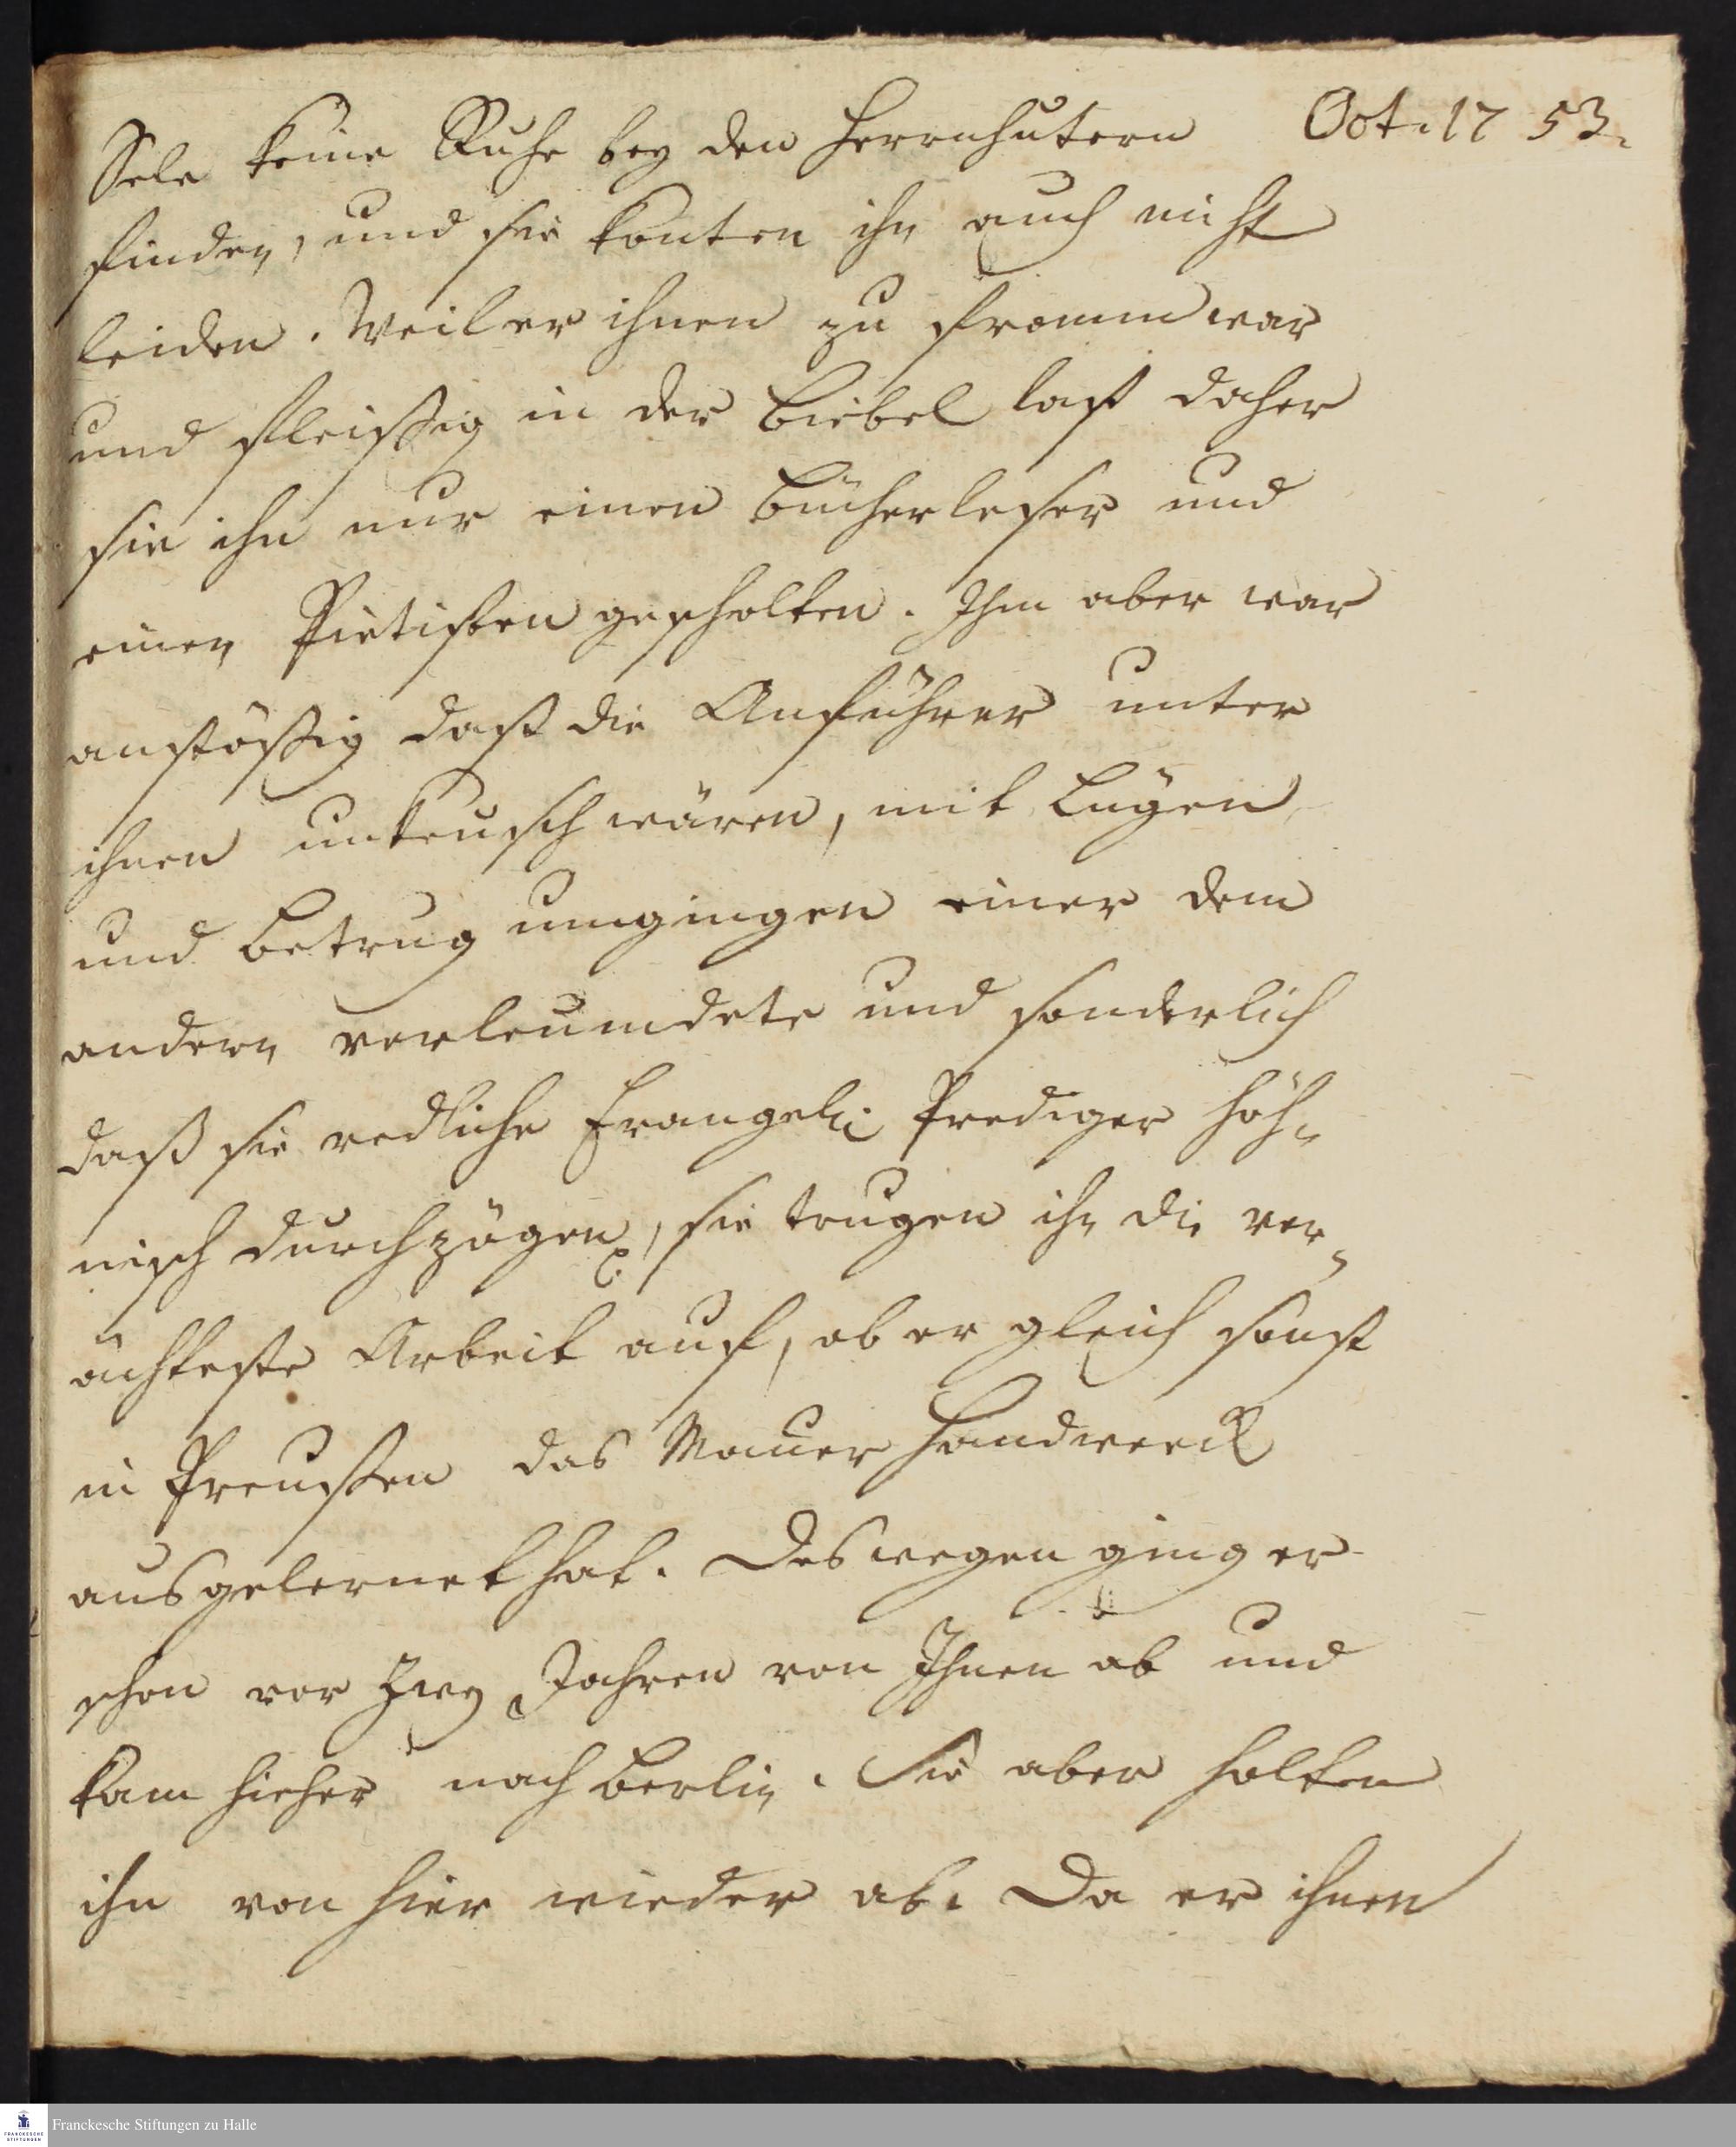 Oct. 17 53.
Sele keine Ruhe bey den Herrnhutern
finden, und sie konten ihn auch nicht
leiden. Weil er ihnen zu fromm war
und fleißig in der Biebel laß daher
sie ihn nur einen Bücherleser und
einen Pietisten gescholten. Ihm aber war
anstößig daß die Anführer unter
ihnen unkeusch wären, mit Lügen
und Betrug umgingen einer dem
andern verleumdete und sonderlich
daß sie redliche Evangel. Prediger höh-
nisch durchzögen, sie trugen ihn die ver-
ächteste Arbeit auf, ob er gleich sonst
in Preußen das Mauer Handwerck
ausgelernet hat. Deswegen ging er
schon vor zwey Jahren von Ihnen ab und
kam hieher nach Berlin. Sie aber holten
ihn von hier wieder ab. Da er ihnen
Franckesche Stiftungen zu Halle
FRANCKESCHE
STIFTUNGEN